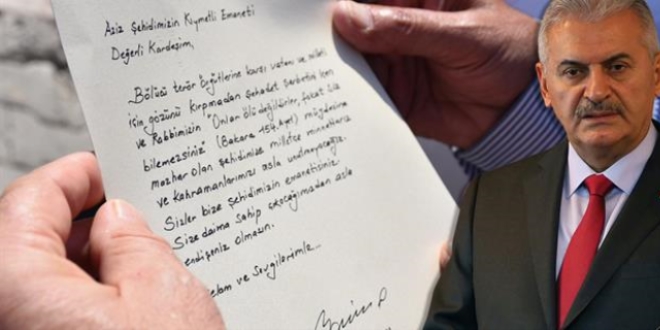 Aziz Şehidimizin Kıymetli Emaneti
Değerli Kardeşim,
Bölücü terör örgütlerine karşı vatanı ve milleti
için gözünü kırpmadan şehadet şerbetini içen
ve Rabbimizin "Onlar ölü değildirler, fakat siz
bilemezsiniz" (Bakara 154. Ayet) müjdesine
mazhar olan şehidimize milletçe minnettarız
ve kahramanlarımızı asla unutmayacağız.
Sizler bize şehidimizin emanetisiniz.
Size daima sahip çıkacağımızdan asla
endişeniz olmasın.
Selam ve Sevgilerimle...